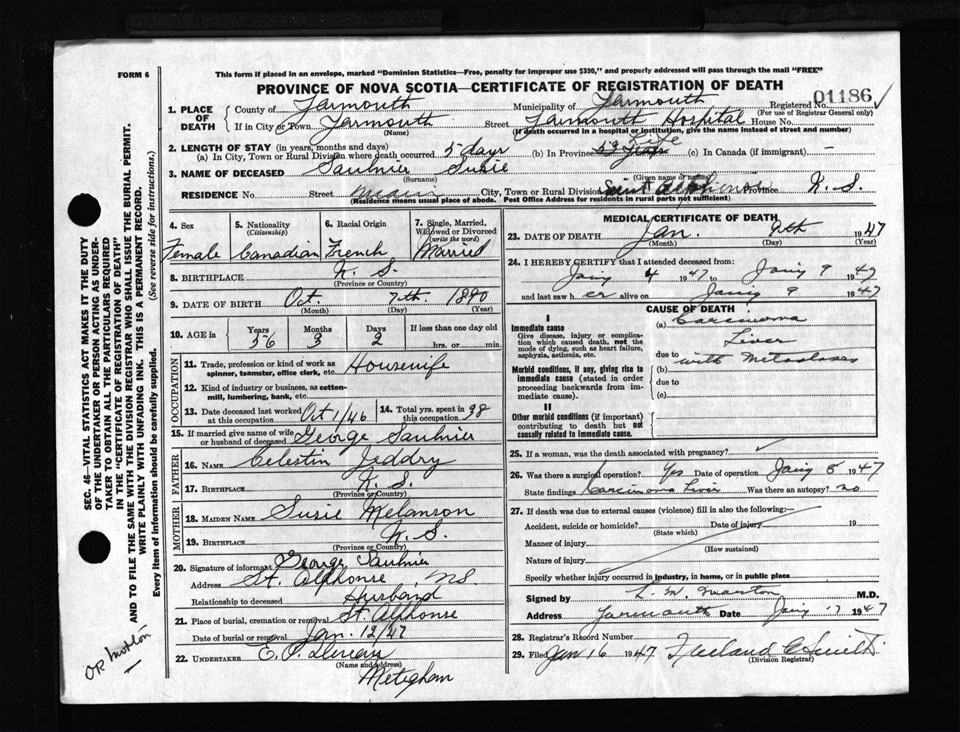 FORM 6
This form if placed in an envelope, marked "Dominion Statistics—Free, penalty for improper use $300," and properly addressed will pass through the mail "FREE"
PROVINCE OF NOVA SCOTIA—CERTIFICATE OF REGISTRATION OF DEATH
01186
1. PLACE OF DEATH
County of Yarmouth Municipality of Yarmouth Registered No.
(For use of Registrar General only)
If in City or Town Yarmouth Street Yarmouth Hospital House No.
(Name) (If death occurred in a hospital or institution, give the name instead of street and number)
2. LENGTH OF STAY (in years, months and days)
(a) In City, Town or Rural Division where death occurred 5 days (b) In Province Life (c) In Canada (if immigrant) —
3. NAME OF DECEASED Saulnier Susie
(Surname) (Given name or names)
RESIDENCE No. Street Main City, Town or Rural Division Saint Alphonse Province N.S.
(Residence means usual place of abode. Post Office Address for residents in rural parts not sufficient)
4. Sex 5. Nationality (Citizenship) 6. Racial Origin 7. Single, Married, Widowed or Divorced (write the word)
Female Canadian French Married
8. BIRTHPLACE N.S.
(Province or Country)
9. DATE OF BIRTH Oct. 7th. 1890
(Month) (Day) (Year)
10. AGE in Years Months Days If less than one day old
56 3 2 hrs. or min.
OCCUPATION
11. Trade, profession or kind of work as spinner, teamster, office clerk, etc. Housewife
12. Kind of industry or business, as cotton-mill, lumbering, bank, etc.
13. Date deceased last worked at this occupation Oct 1/46 14. Total yrs. spent in this occupation 38
15. If married give name of wife or husband of deceased George Saulnier
FATHER
16. NAME Celestin Jeddry
17. BIRTHPLACE N.S.
(Province or Country)
MOTHER
18. MAIDEN NAME Susie Melanson
19. BIRTHPLACE N.S.
(Province or Country)
20. Signature of informant George Saulnier
Address St. Alphonse, NS.
Relationship to deceased Husband
21. Place of burial, cremation or removal St. Alphonse
Date of burial or removal Jan. 12/47
22. UNDERTAKER
(Name and address)
Meteghan
MEDICAL CERTIFICATE OF DEATH
23. DATE OF DEATH Jan. 9th 1947
(Month) (Day) (Year)
24. I HEREBY CERTIFY that I attended deceased from:
Jany 4 1947 to Jany 9 1947
and last saw her alive on Jany 9 1947
CAUSE OF DEATH
I
Immediate cause
Give disease, injury or complication which caused death, not the mode of dying, such as heart failure, asphyxia, asthenia, etc.
(a) Carcinoma
Liver
due to
with Metastases
(b)
Morbid conditions, if any, giving rise to immediate cause (stated in order proceeding backwards from immediate cause).
due to
(c)
II
Other morbid conditions (if important) contributing to death but not causally related to immediate cause.
25. If a woman, was the death associated with pregnancy?
26. Was there a surgical operation? Yes Date of operation Jany 5 1947
State findings Carcinoma Liver Was there an autopsy? no
27. If death was due to external causes (violence) fill in also the following:—
Accident, suicide or homicide? Date of injury 19
(State which)
Manner of injury
(How sustained)
Nature of injury
Specify whether injury occurred in industry, in home, or in public place
Signed by L. M. Morton M.D.
Address Yarmouth Date Jany 1947
28. Registrar's Record Number
29. Filed Jan 16 1947
(Division Registrar)
SEC. 46—VITAL STATISTICS ACT MAKES IT THE DUTY
OF THE UNDERTAKER OR PERSON ACTING AS UNDER-
TAKER TO OBTAIN ALL THE PARTICULARS REQUIRED
IN THE "CERTIFICATE OF REGISTRATION OF DEATH"
AND TO FILE THE SAME WITH THE DIVISION REGISTRAR WHO SHALL ISSUE THE BURIAL PERMIT.
WRITE PLAINLY WITH UNFADING INK. THIS IS A PERMANENT RECORD.
Every item of Information should be carefully supplied. (See reverse side for instructions.)